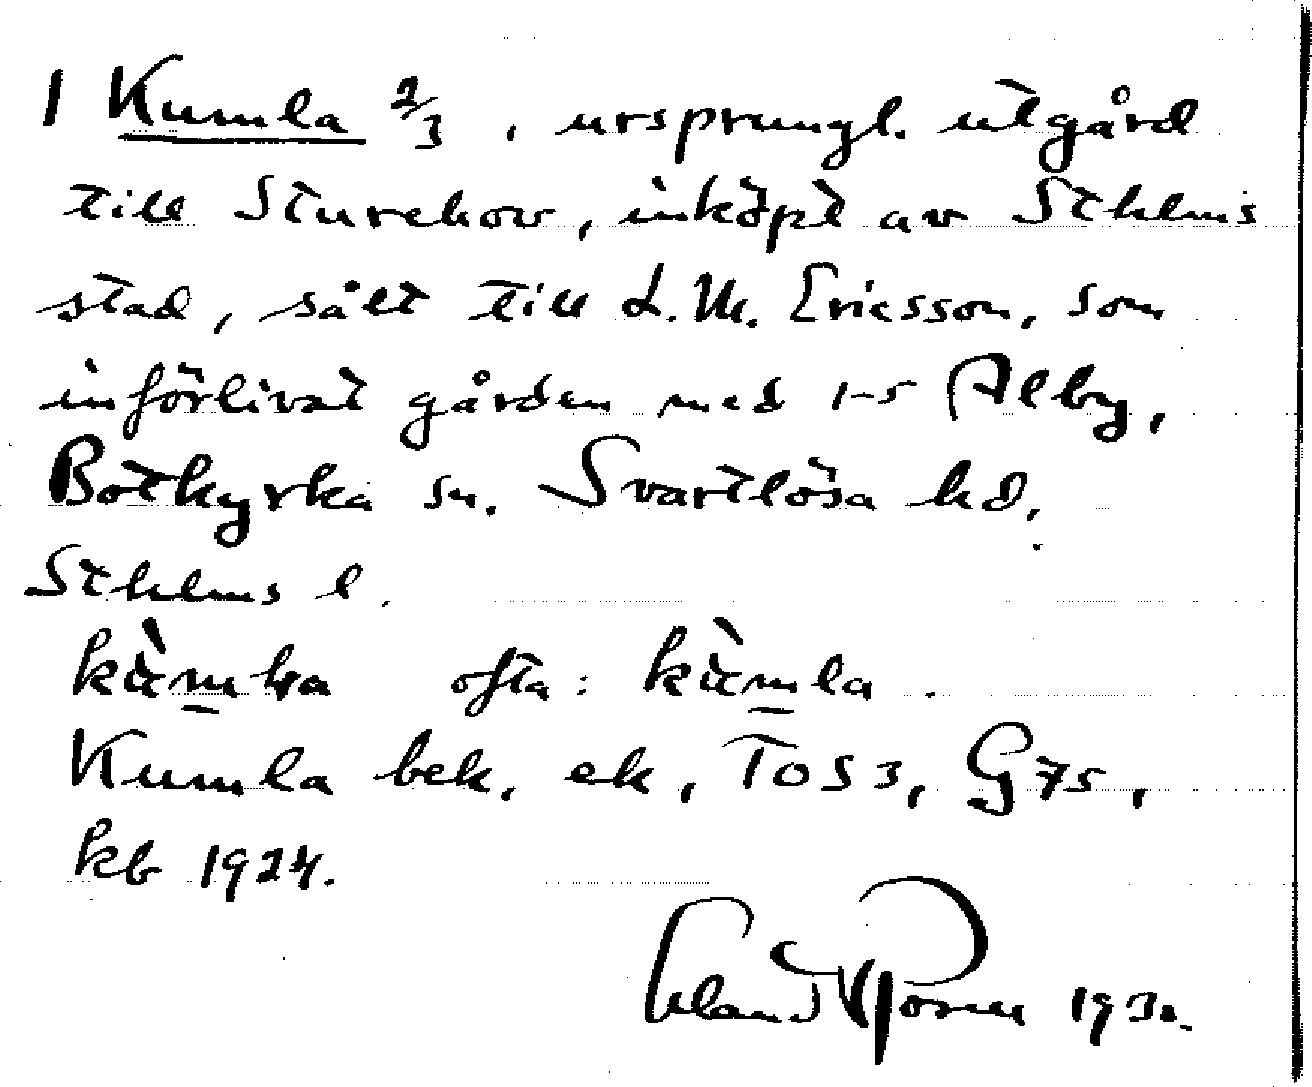 1 Kumla 2/3, ursprungl. utgård
till Sturehov, inköpt av Sthlms
stad, sålt till L. M. Ericsson, som
införlivat gården med 1-5 Alby,
Botkyrka sn. Svartlösa hd.
Sthlms l.
ofta: kùmla.
Kumla bek. ek, TOS 3, G 75,
kb 1924.